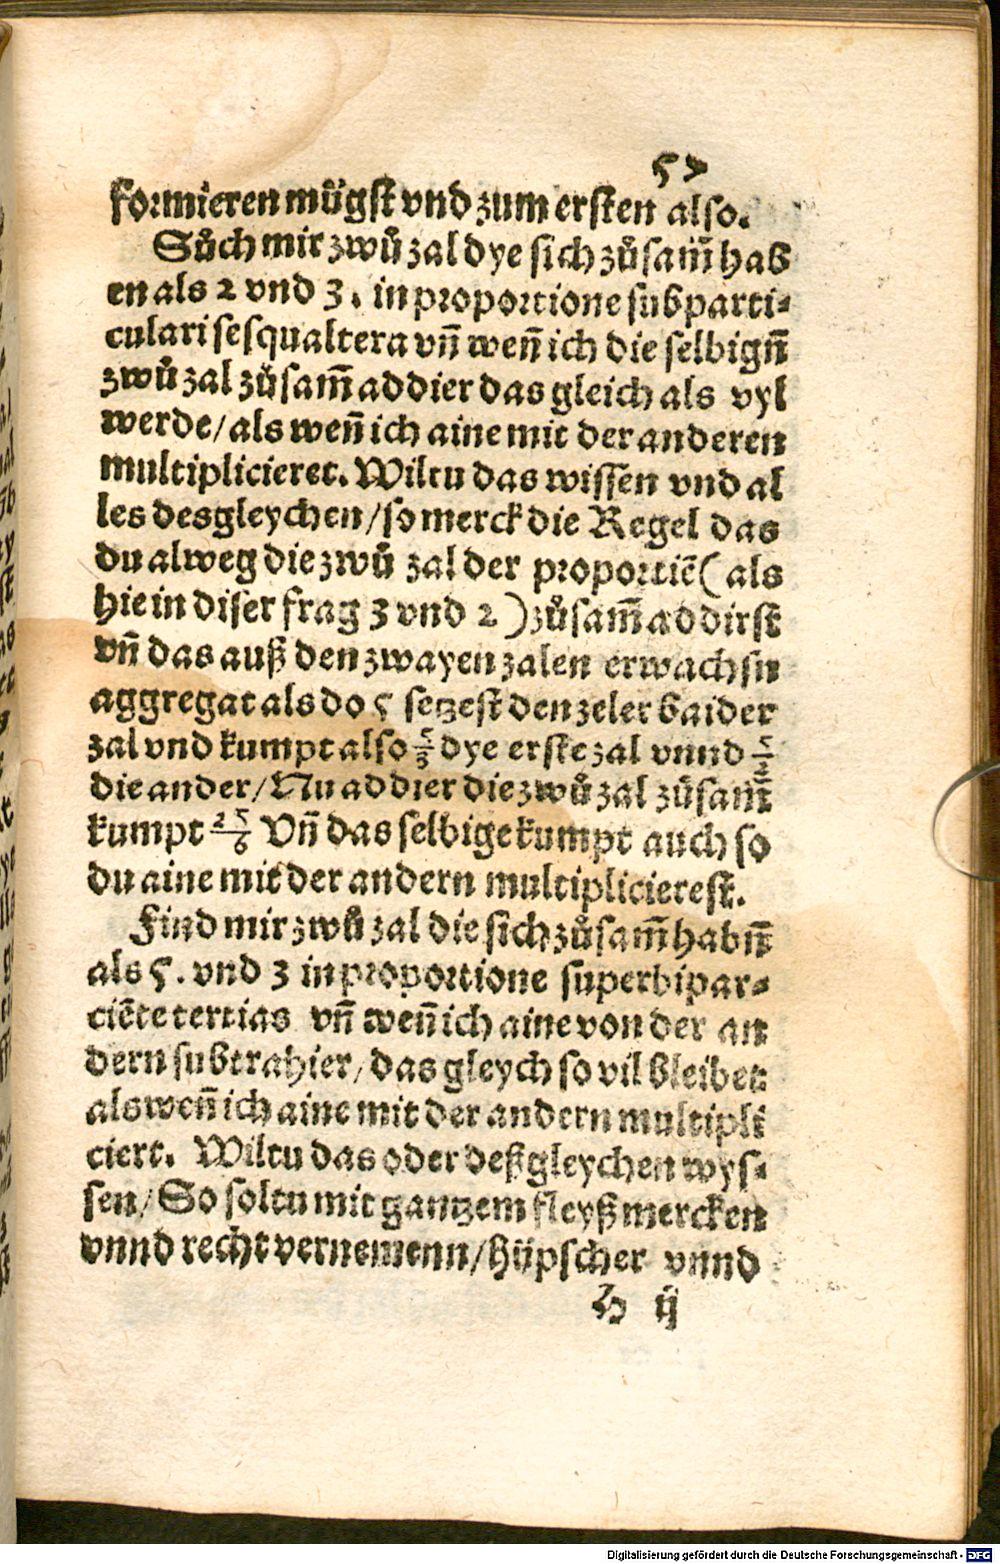 57
formieren mügst vnd zum ersten also.
Sůch mir zwů zal dye sich zůsam̄ hab
en als 2 vnd 3. in proportione subparti-
culari sesqualtera vn̄ wen̄ ich die selbign̄
zwů zal zůsam̄ addier das gleich als vyl
werde/als wen̄ ich aine mit der anderen
multiplicieret. Wiltu das wissen vnd al
les desgleychen/so merck die Regel das
du alweg die zwů zal der proportiē(als
hie in diser frag 3 vnd 2)zůsam̄ addirst
vn̄ das auß den zwayen zalen erwachsn
aggregat als do 5 setzest den zeler baider
zal vnd kumpt also 5/3 dye erste zal vnnd 5/2
die ander/Nu addier die zwů zal zůsam̄
kumpt 25/6 Vn̄ das selbige kumpt auch so
du aine mit der andern multiplicierest.
Find mir zwů zal die sich zůsam̄ habn̄
als 5. vnd 3 in proportione superbipar-
ciēte tertias vn̄ wen̄ ich aine von der an
dern subtrahier/das gleych so vil bleibet
als wen̄ ich aine mit der andern multipli
ciert. Wiltu das oder deßgleychen wys-
sen/So soltu mit gantzem fleyß mercken
vnnd recht vernemenn/hüpscher vnnd
H ij
Digitalisierung gefördert durch die Deutsche Forschungsgemeinschaft - DFG